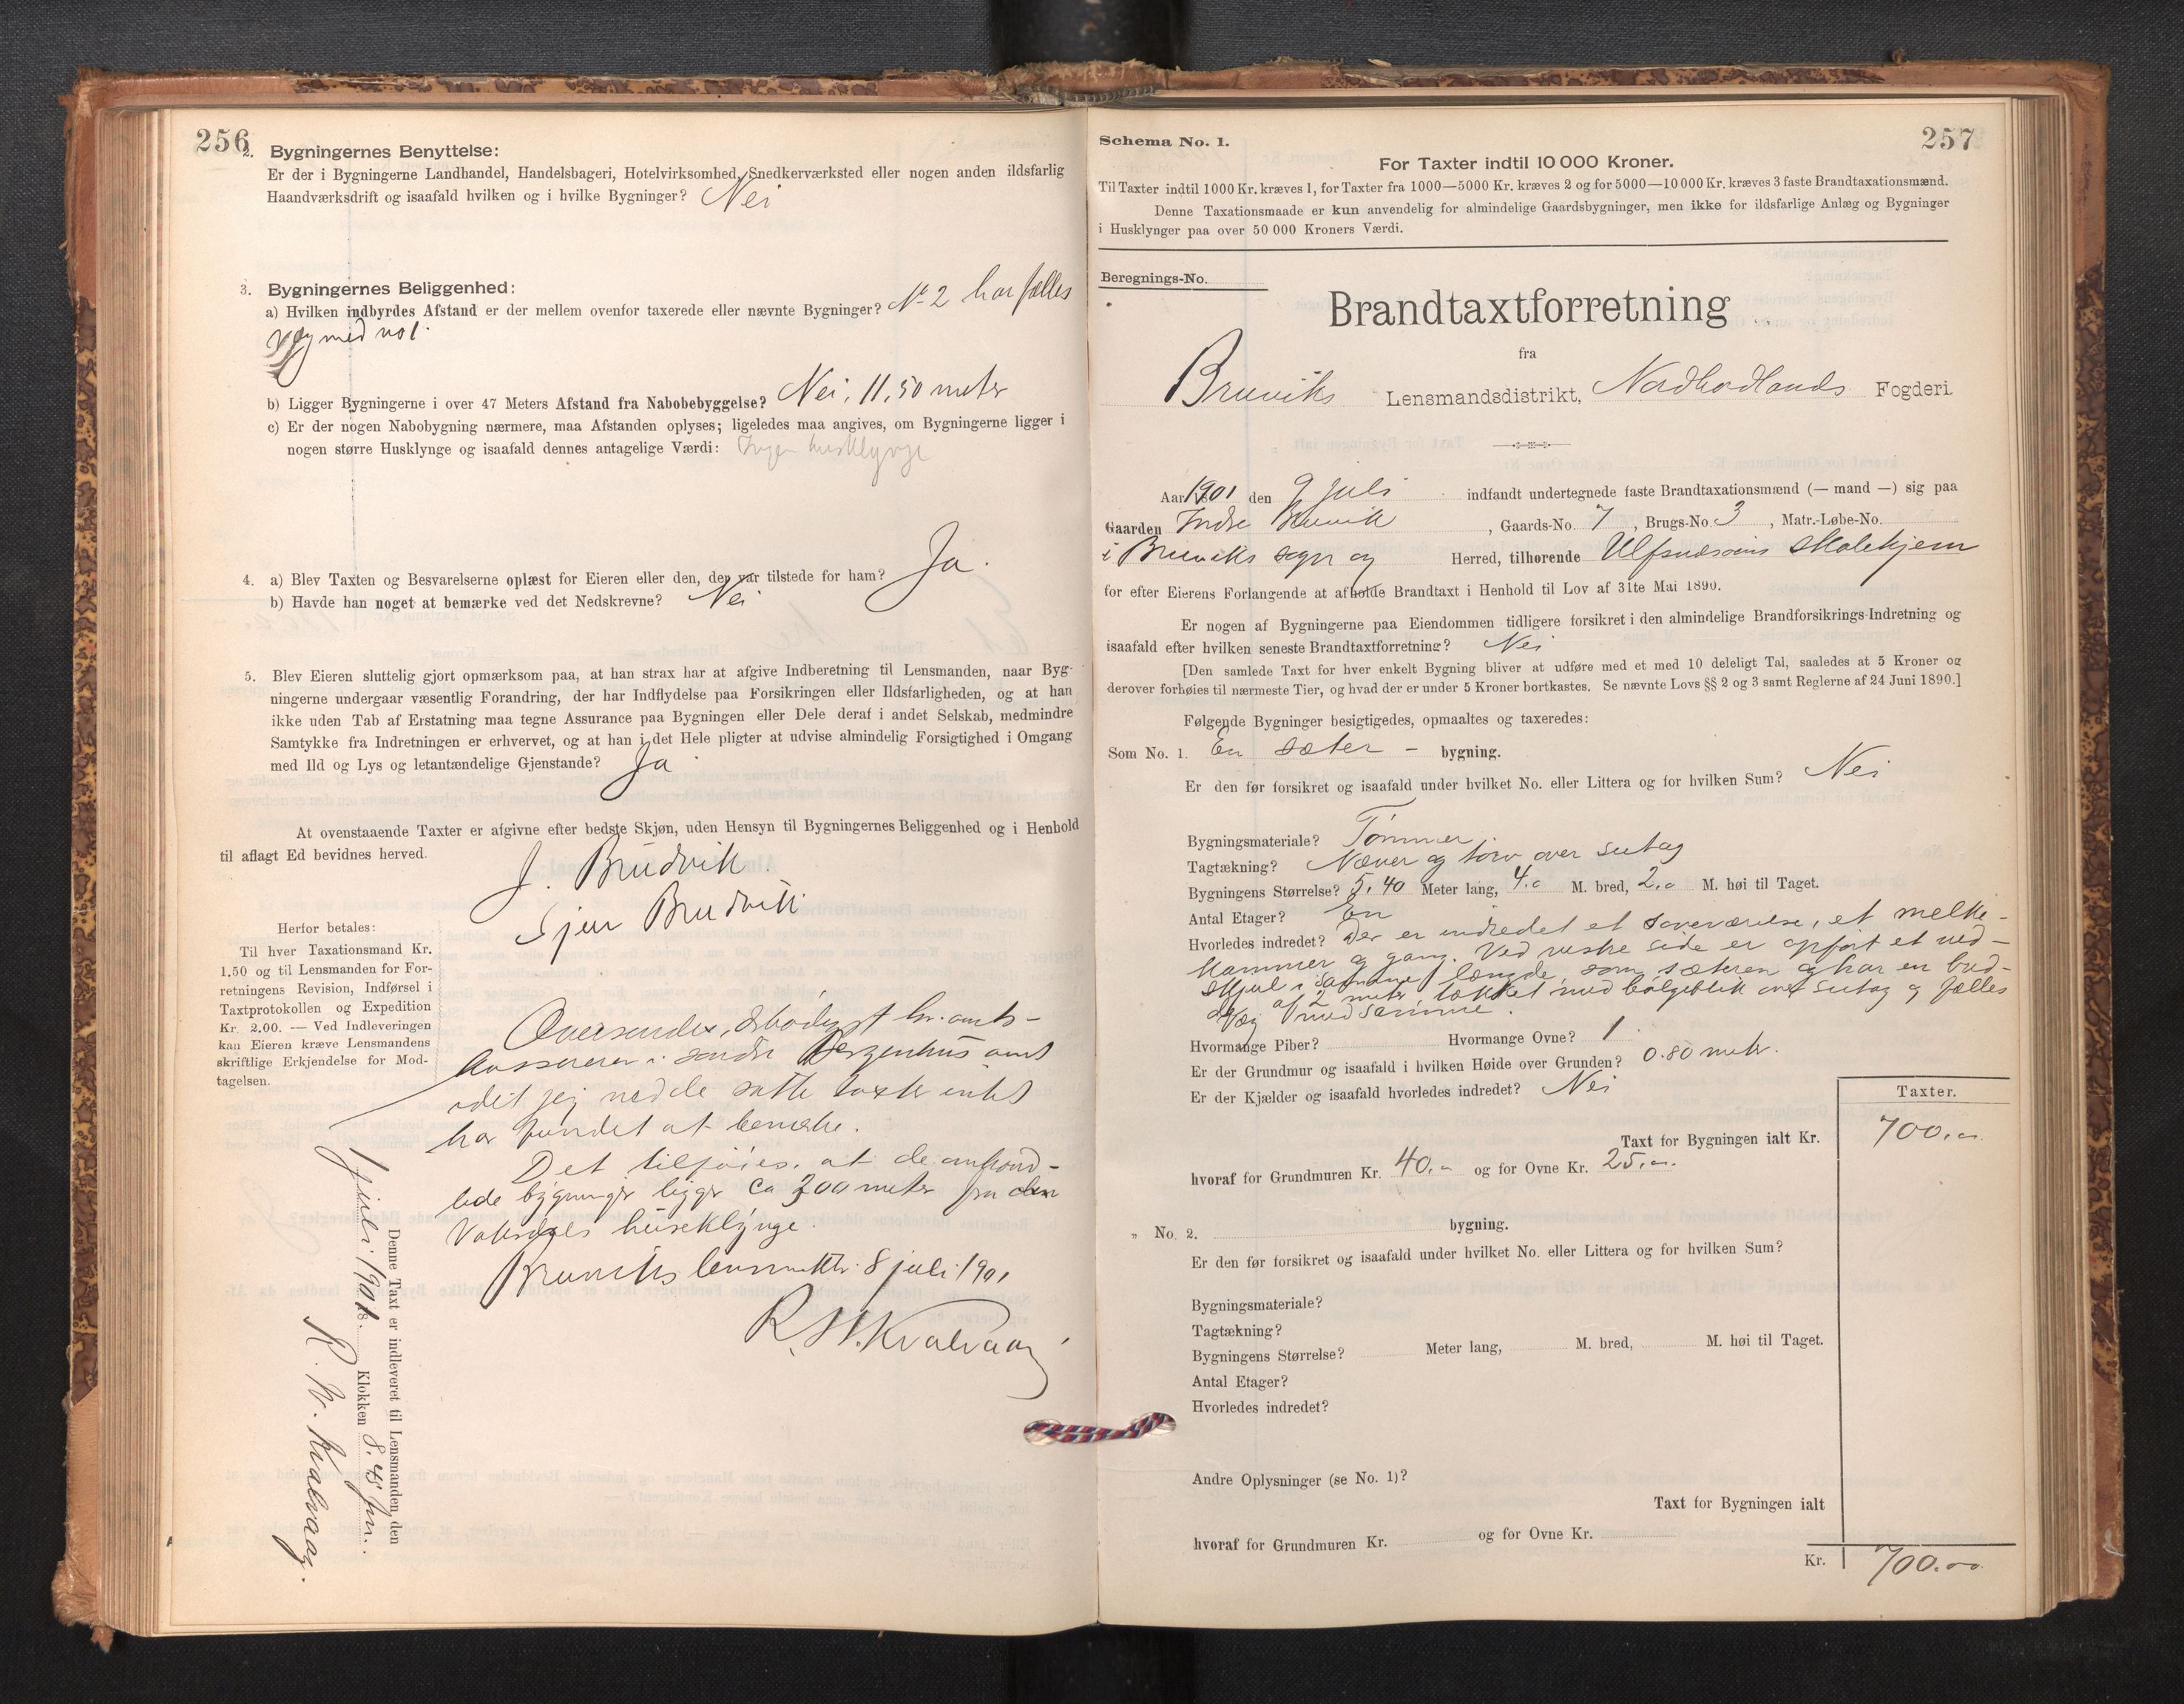 256
2. Bygningernes Benyttelse:
Er der i Bygningerne Landhandel, Handelsbageri, Hotelvirksomhed, Snedkerværksted eller nogen anden ildsfarlig
Haandværksdrift og isaafald hvilken og i hvilke Bygninger? Nei
3. Bygningernes Beliggenhed:
a) Hvilken indbyrdes Afstand er der mellem ovenfor taxerede eller nævnte Bygninger? No 2 har fælles
væg med no 1.
b) Ligger Bygningerne i over 47 Meters Afstand fra Nabobebyggelse? Nei, 11,50 meter
c) Er der nogen Nabobygning nærmere, maa Afstanden oplyses; ligeledes maa angives, om Bygningerne ligger i
nogen større Husklynge og isaafald dennes antagelige Værdi: Ingen husklynge
4. a) Blev Taxten og Besvarelserne oplæst for Eieren eller den, der var tilstede for ham? Ja.
b) Havde han noget at bemærke ved det Nedskrevne? Nei
5. Blev Eieren sluttelig gjort opmærksom paa, at han strax har at afgive Indberetning til Lensmanden, naar Byg-
ningerne undergaar væsentlig Forandring, der har Indflydelse paa Forsikringen eller Ildsfarligheden, og at han
ikke uden Tab af Erstatning maa tegne Assurance paa Bygningen eller Dele deraf i andet Selskab, medmindre
Samtykke fra Indretningen er erhvervet, og at han i det Hele pligter at udvise almindelig Forsigtighed i Omgang
med Ild og Lys og letantændelige Gjenstande? Ja
At ovenstaaende Taxter er afgivne efter bedste Skjøn, uden Hensyn til Bygningernes Beliggenhed og i Henhold
til aflagt Ed bevidnes herved.
J. Brudvik.
Sjur Brudvik
Herfor betales:
Til hver Taxationsmand Kr.
1.50 og til Lensmanden for For-
retningens Revision, Indførsel i
Taxtprotokollen og Expedition
Kr. 2.00. — Ved Indleveringen
kan Eieren kræve Lensmandens
skriftlige Erkjendelse for Mod-
tagelsen.
Oversendes, ærbødigst hr. amts-
kassereren i søndre Bergenhus amt
idet jeg ved de satte takster intet
har fundet at bemærke.
Det tilføies, at de omhand-
lede bygninger ligger ca 300 meter fra den
Vaksdals huseklynge.
Bruviks 8 juli 1901
R. N. Kvalvaag
Denne Taxt er indleveret til Lensmanden den
juli 1901. Klokken 8.45 fm.
R. N. Kvalvaag.
Schema No. 1.
257
For Taxter indtil 10 000 Kroner.
Til Taxter indtil 1000 Kr. kræves 1, for Taxter fra 1000—5000 Kr. kræves 2 og for 5000—10 000 Kr. kræves 3 faste Brandtaxationsmænd.
Denne Taxationsmaade er kun anvendelig for almindelige Gaardsbygninger, men ikke for ildsfarlige Anlæg og Bygninger
i Husklynger paa over 50 000 Kroners Værdi.
Beregnings-No.
Brandtaxtforretning
fra
Bruviks Lensmandsdistrikt, Nordhordlands Fogderi.
Aar 1901 den 9 juli indfandt undertegnede faste Brandtaxationsmænd (— mand —) sig paa
Gaarden Indre Bruvik, Gaards-No. 7, Brugs-No. 3, Matr.-Løbe-No.
i Bruviks sogn og Herred, tilhørende Ulfsnesøens skolehjem
for efter Eierens Forlangende at afholde Brandtaxt i Henhold til Lov af 31te Mai 1890.
Er nogen af Bygningerne paa Eiendommen tidligere forsikret i den almindelige Brandforsikrings-Indretning og
isaafald efter hvilken seneste Brandtaxtforretning? Nei
[Den samlede Taxt for hver enkelt Bygning bliver at udføre med et med 10 deleligt Tal, saaledes at 5 Kroner og
derover forhøies til nærmeste Tier, og hvad der er under 5 Kroner bortkastes. Se nævnte Lovs §§ 2 og 3 samt Reglerne af 24 Juni 1890.]
Følgende Bygninger besigtigedes, opmaaltes og taxeredes:
Som No. 1. En sæter - bygning.
Er den før forsikret og isaafald under hvilket No. eller Littera og for hvilken Sum? Nei
Bygningsmateriale? Tømmer.
Tagtækning? Næver og torv over sutag
Bygningens Størrelse? 5,40 Meter lang, 4.0 M. bred, 2.0 M. høi til Taget.
Antal Etager? En
Hvorledes indredet? Der er indredet et soveværelse, et melke-
kammer og gang. Ved vestre side er opført et ved-
skjul i samme længde som sæteren og har en bred-
de af 2 meter, tækket med bølgeblik over sutag og fælles
væg med samme.
Hvormange Piber? Hvormange Ovne? 1
Er der Grundmur og isaafald i hvilken Høide over Grunden? 0.80 metr.
Er der Kjælder og isaafald hvorledes indredet? Nei
Taxter.
Taxt for Bygningen ialt Kr. 700.-
hvoraf for Grundmuren Kr. 40.- og for Ovne Kr. 25.-
" No. 2. bygning.
Er den før forsikret og isaafald under hvilket No. eller Littera og for hvilken Sum?
Bygningsmateriale?
Tagtækning?
Bygningens Størrelse? Meter lang, M. bred, M. høi til Taget.
Antal Etager?
Hvorledes indredet?
Andre Oplysninger (se No. 1)?
Taxt for Bygningen ialt
hvoraf for Grundmuren Kr. og for Ovne Kr.
Kr. 700.00